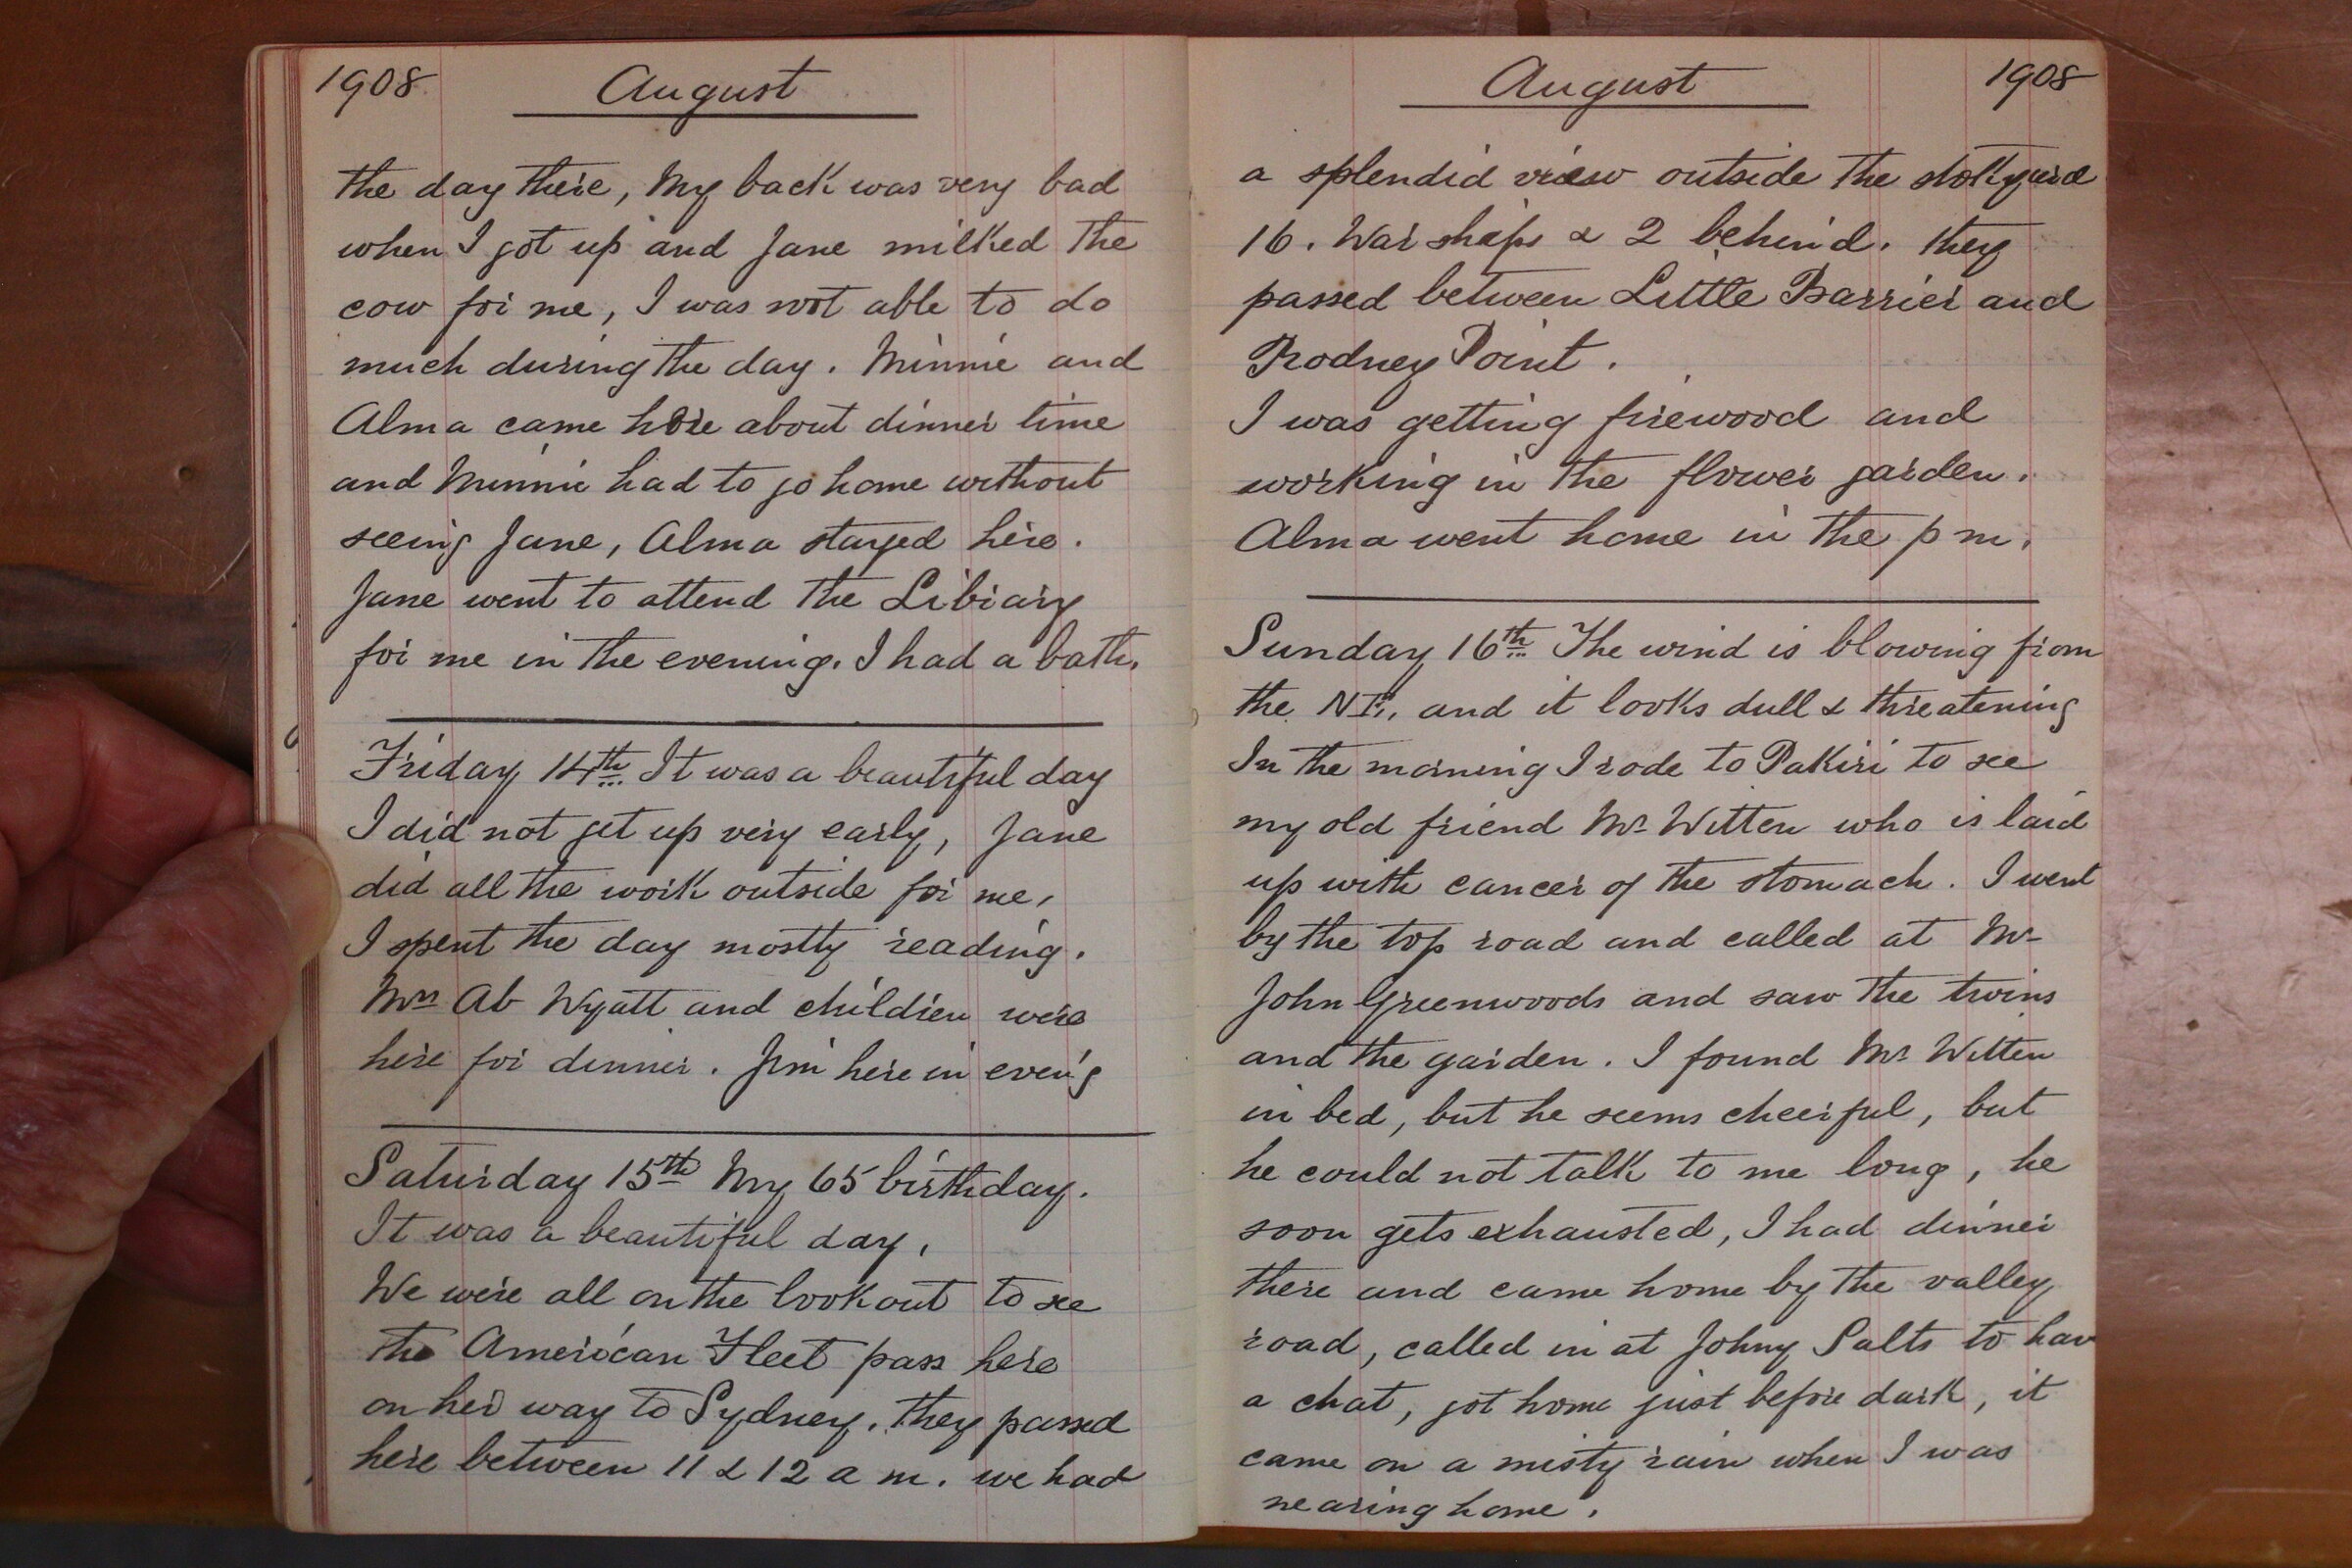 1908 August
the day there, My back was very bad
when I got up and Jane milked the
cow for me, I was not able to do
much during the day. Minnie and
Alma came here about dinner time
and Minnie had to go home without
seeing Jane, Alma stayed here.
Jane went to attend the Library
for me in the evening. I had a bath.
Friday 14th It was a beautiful day
I did not get up very early, Jane
did all the work outside for me,
I spent the day mostly reading.
Mrs Ab Wyatt and children were
here for dinner. Jim here in even'g
Saturday 15th My 65 birthday.
It was a beautiful day,
We were all on the lookout to see
the American Fleet pass here
on her way to Sydney. they passed
here between 11 & 12 a m. we had
August 1908
a splendid view outside the stokyard
16. War ships & 2 behind. they
passed between Little Barrier and
Rodney Point.
I was getting firewood and
working in the flower garden.
Alma went home in the p m.
Sunday 16th The wind is blowing from
the NE, and it looks dull & threatening
In the morning I rode to Pakiri to see
my old friend Mr Witten who is laid
up with cancer of the stomach. I went
by the top road and called at Mr
John Greenwoods and saw the twins
and the garden. I found Mr Witten
in bed, but he seems cheerful, but
he could not talk to me long, he
soon gets exhausted, I had dinner
there and came home by the valley
road, called in at Johny Salts to hav
a chat, got home just before dark, it
came on a misty rain when I was
nearing home.